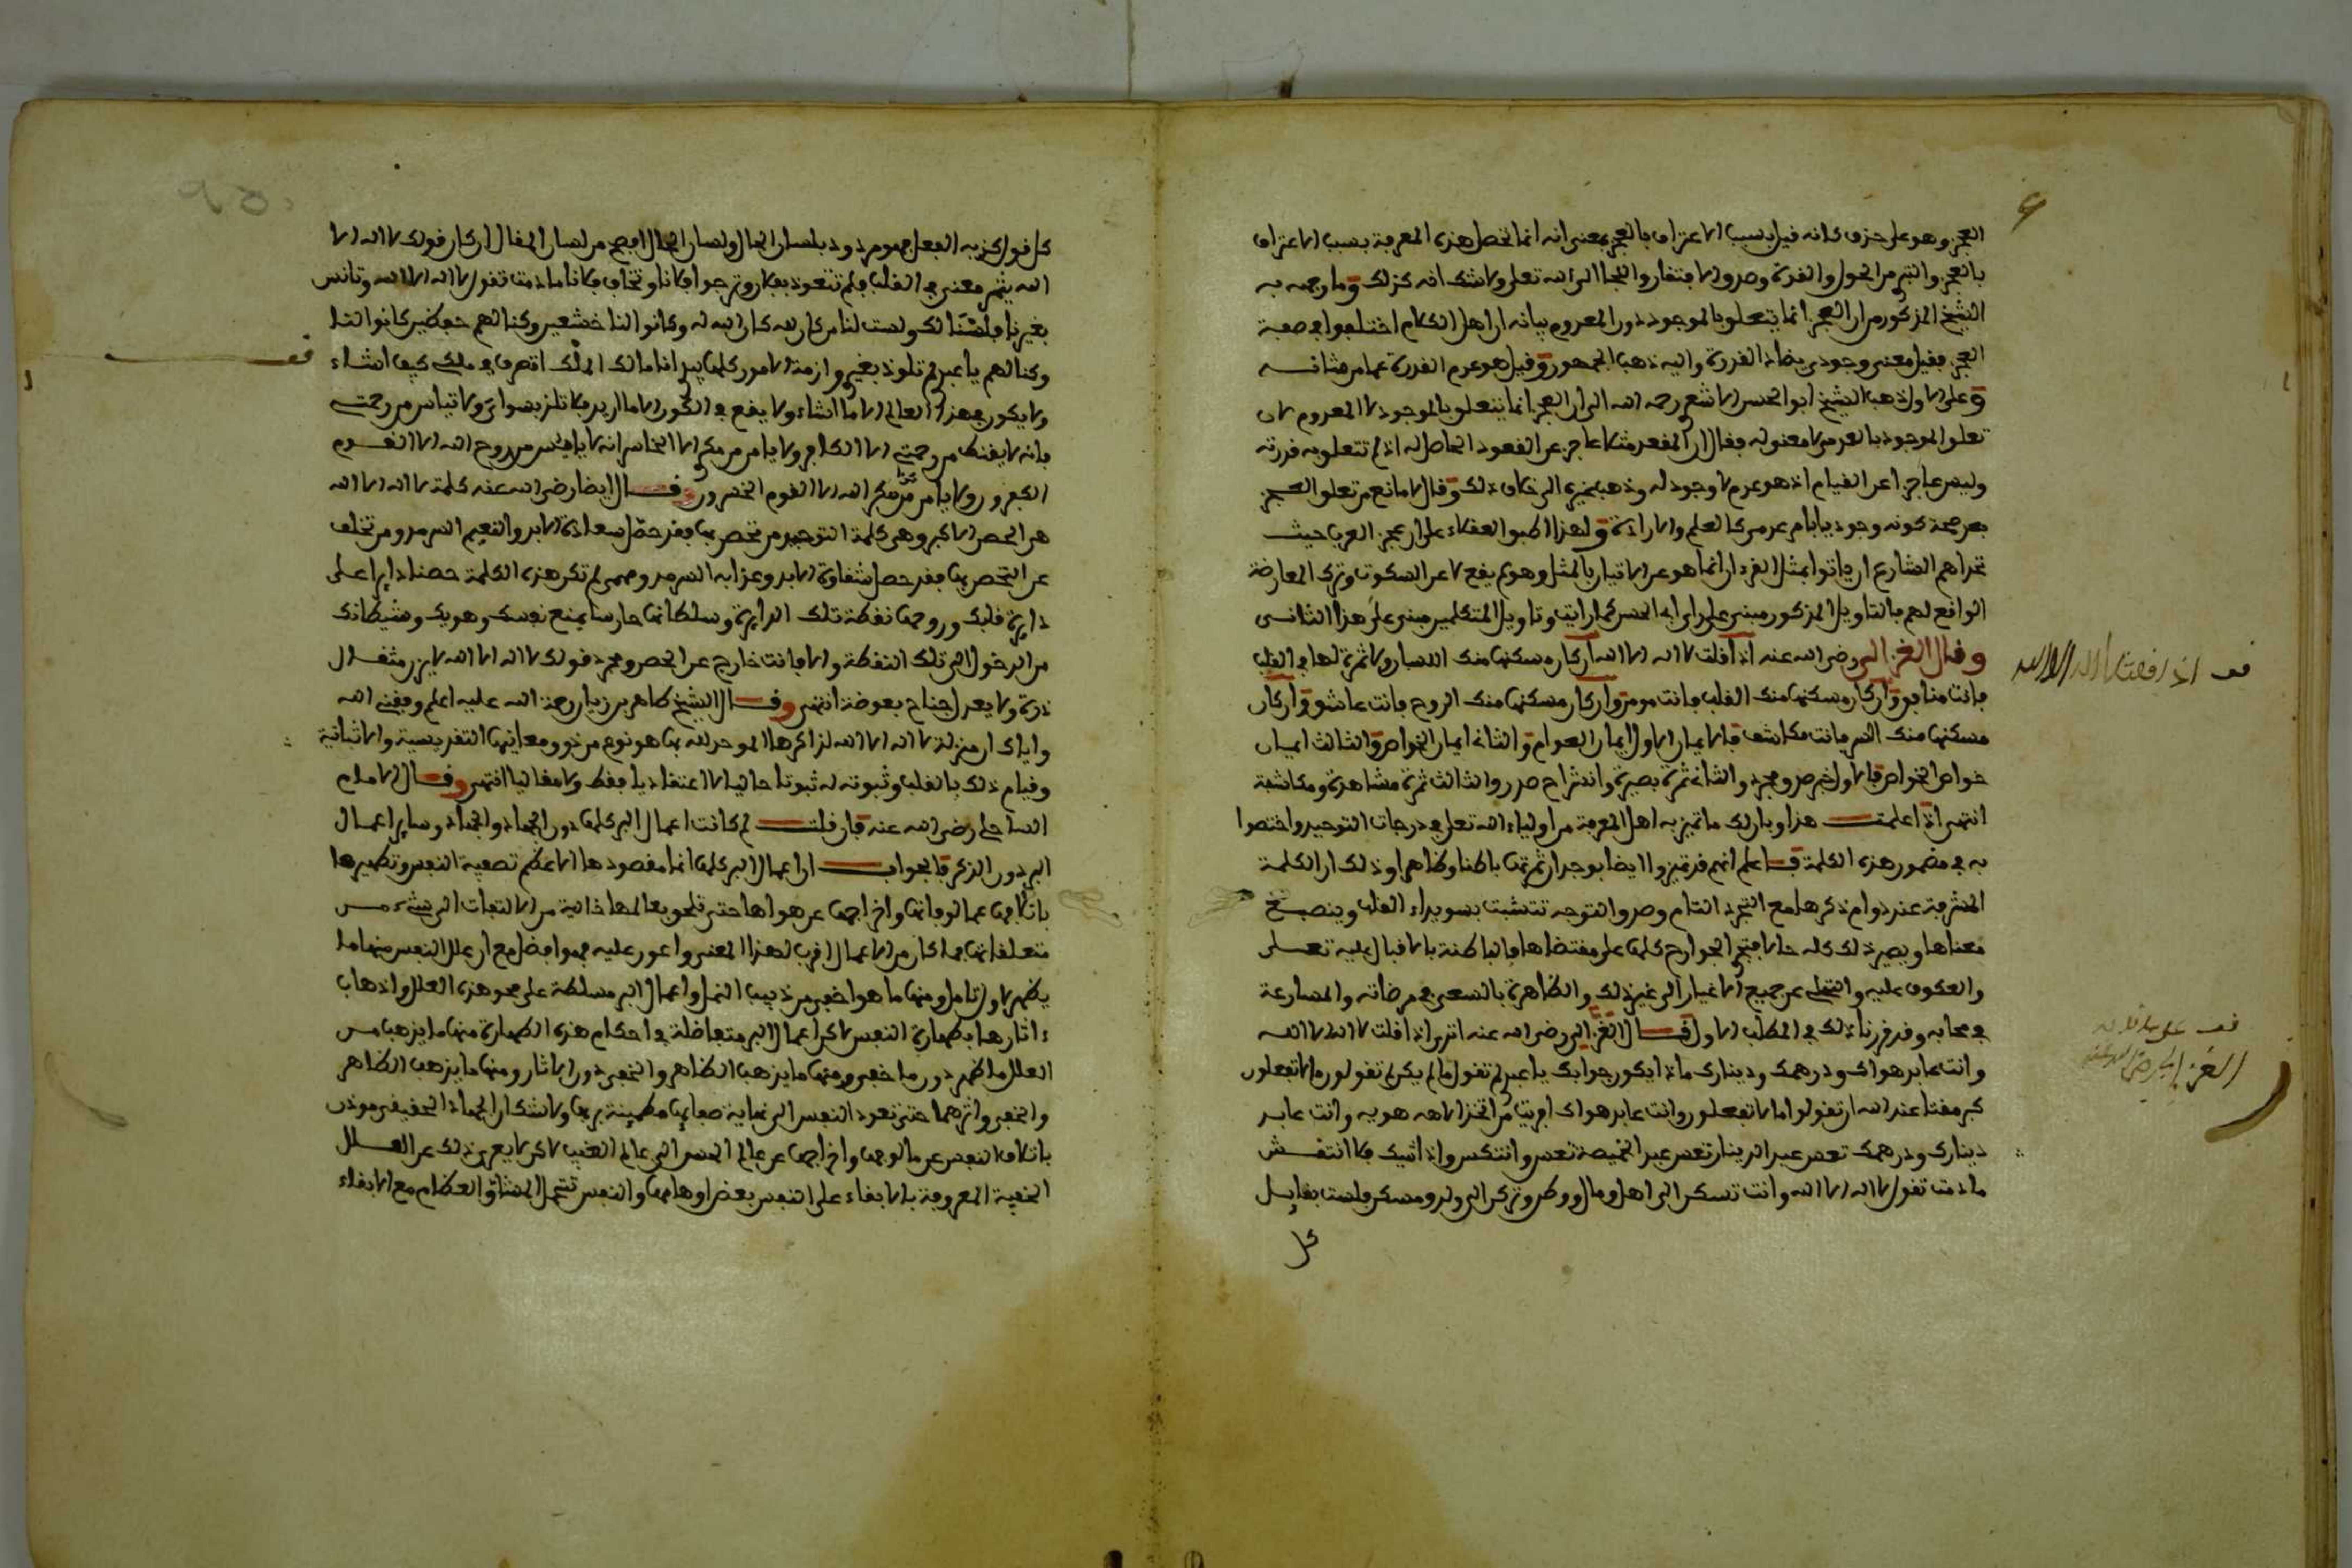 العجز وهو على حذف كانه قيل بسبب الاعتراف بالعجز بمعنى انه انما تحصل هذه المعرفة بسبب الاعتراف
بالعجز والتبرى من الحول والقوة وصدق الافتقار واللجا الى الله تعلى ولا شك انه كذلك وما وجهه به
الشيخ المذكور من ان العجز انما يتعلق بالموجود دون المعدوم بيانه ان اهل الكلام اختلفوا في صفة
العجز فقيل معنى وجودي يضاد القدرة واليه ذهب الجمهور وقيل هو عدم القدرة عما من شانه
وعلى الاول ذهب الشيخ ابو الحسن الاشعري رحمه الله الى ان العجز انما يتعلق بالموجود لا المعدوم لان
تعلق الموجود بالعدم لا معنى له فقال ان المقعد مثلا عاجز عن القعود الحاصل له اذ لم تتعلق به قدرته
وليس عاجزا عن القيام اذ هو عدم لا وجود له وذهب غيره الى خلاف ذلك وقال لا مانع من تعلق العجز
بعد صحة كونه وجوديا بالعدم كالعلم والارادة ولهذا اطبق العقلاء على ان عجز العرب حيث
تحداهم الشارع ان ياتوا بمثل القرءان انما هو عن الاتيان بالمثل وهو لم يقع لا عن السكوت وترك المعارضة
الواقع لهم فالتاويل المذكور مبني على راي ابي الحسن كما رايت وتاويل المتكلمين مبني على هذا الثاني
وقال الغزالي رضي الله عنه اذا قلت لا اله الا الله ان كان مسكنها منك اللسان ولا ثمرة لها في القلب
فانت منافق وان كان مسكنها منك القلب فانت مومن وان كان مسكنها منك الروح فانت عاشق وان كان
مسكنها منك السر فانت مكاشف فالايمان الاول ايمان العوام والثاني ايمان الخواص والثالث ايمان
خواص الخواص فالاول خبر صدق مجرد والثاني ثمرة بصيرة وانشراح صدر والثالث ثمرة مشاهدة ومكاشفة
انتهى اذا علمت هذا وبان لك ما تميز به اهل المعرفة من اولياء الله تعلى في درجات التوحيد واختصوا
به في مضمون هذه الكلمة فاعلم انهم قد تميزوا ايضا بوجدان ثمرتها باطنا وظاهرا وذلك ان الكلمة
المشرفة عند دوام ذكرها مع التجرد التام وصدق التوجه تتشبث بسويداء القلب وينصبغ
معناها ويصير ذلك كله حالا فتجري الجوارح كلها على مقتضاها فالباطنة بالاقبال عليه تعلى
والعكوف عليه والتخلي عن جميع الاغيار الى غير ذلك والظاهرة بالسعي في مرضاته والمسارعة
في محابه وقد قررنا ذلك في المطلب الاول قال الغزالي رضي الله عنه اترى اذا قلت لا اله الا الله
وانت عابد هواك ودرهمك ودينارك ماذا يكون جوابك يا عبدي لم تقول ما لم يكن لم تقولون ما لا تفعلون
كبر مقتا عند الله ان تقولوا ما لا تفعلون وانت عابد هواك افرايت من اتخذ الاهه هويه وانت عابد
دينارك ودرهمك تعس عبد الدينار تعس عبد الخميصة تعس وانتكس واذا شيك فلا انتقش
ما دمت تقول لا اله الا الله وانت تسكن الى اهل ومال ووطن وتركن الى ولد ومسكن فلست بقايل
كل
قف اذا قلت لا اله الا الله
الغزالي رضي الله عنه
كل قول يكذبه الفعل فهو مردود بلسان الحال ولسان الحال افصح من لسان المقال ان كان قولك لا اله الا
الله يثمر معنى في القلب فلم تتعوذ بفلان وترجوا فلانا وتخاف فلانا ما دمت تقول لا اله الا الله وتانس
بغيرنا فلسنا لك ولست لنا من كان لله كان الله له وكانوا لنا خشعين وكنا لهم حفظين كانوا لنا
وكنا لهم يا عبدي لم تلوذ بغيري وازمة الامور كلها بيدي انا مالك الملك اتصرف في ملكي كيف اشاء
ولا يكون في هذا العالم الا ما اشاء ولا يقع في الكون الا ما اريد فلا تلذ بسواي ولا تياس من رحمتي
فانه لا يقنط من رحمتي الا الكافر ولا يامن من مكري الا الخاسر انه لا يايئس من روح الله الا القوم
الكفرون ولا يامن مكر الله الا القوم الخسرون وقال ايضا رضي الله عنه كلمة لا اله الا الله
هي الحصن الاكبر وهي كلمة التوحيد من تحصن بها فقد حصل سعادة الابد والنعيم السرمد ومن تخلف
عن التحصن بها فقد حصل شقاوة الابد وعذابه السرمد ومهما لم تكن هذه الكلمة حصنا دايرا على
دايرة قلبك وروحها نقطة تلك الدايرة وسلطانها حارسا يمنع نفسك وهويك وشيطانك
من الدخول الى تلك النقطة والا فانت خارج عن الحصن ومجرد قولك لا اله الا الله لا يزن مثقال
ذرة ولا يعدل جناح بعوضة انتهى وقال الشيخ طاهر بن زيان رحمة الله عليه اعلم وفقني الله
واياك ان منزلة لا اله الا الله لذاكرها الموحد لله بها هو نوع من ذوق معانيها التقديسية والاثباتية
وقيام ذلك بالقلب وثبوته له ثبوتا حاليا لا اعتقاديا فقط ولا مقاليا انتهى وقال الامام
الساحلي رضي الله عنه فان قلت لم كانت اعمال البر كلها دون الجهاد والجهاد وساير اعمال
البر دون الذكر فالجواب ان اعمال البر كلها انما مقصودها الاعظم تصفية النفس وتطهيرها
باتلافها عما لوفاتها واخراجها عن هواها حتى تلحق بعالمها خالية من الالتفات الى شيء من
متعلقاتها فما كان من الاعمال اقرب لهذا المعنى واعون عليه فهو افضل مع ان علل النفس منها ما
يظهر باول تامل ومنها ما هو اخفى من ذبيب النمل واعمال البر مسلطة على محو هذه العلل واذهاب
ءاثارها بطهارة النفس لاكن اعمال البر متفاضلة في احكام هذه الطهارة منها ما يذهب من
العلل ما ظهر دون ما خفي ومنها ما يذهب الظاهر والخفي دون الاثار ومنها ما يذهب الظاهر
والخفي واثرهما حتى تعود النفس الى نهاية صفايها مطمينة بربها ولا شك ان الجهاد الحقيقي موذن
باتلاف النفس عن مالوفها واخراجها عن عالم الحس الى عالم الغيب لاكن لا يعرى ذلك عن العلل
الخفية المعروفة بالابقاء على النفس بعض اوهامها والنفس تتحمل المشاق العظام مع الابقاء
قف